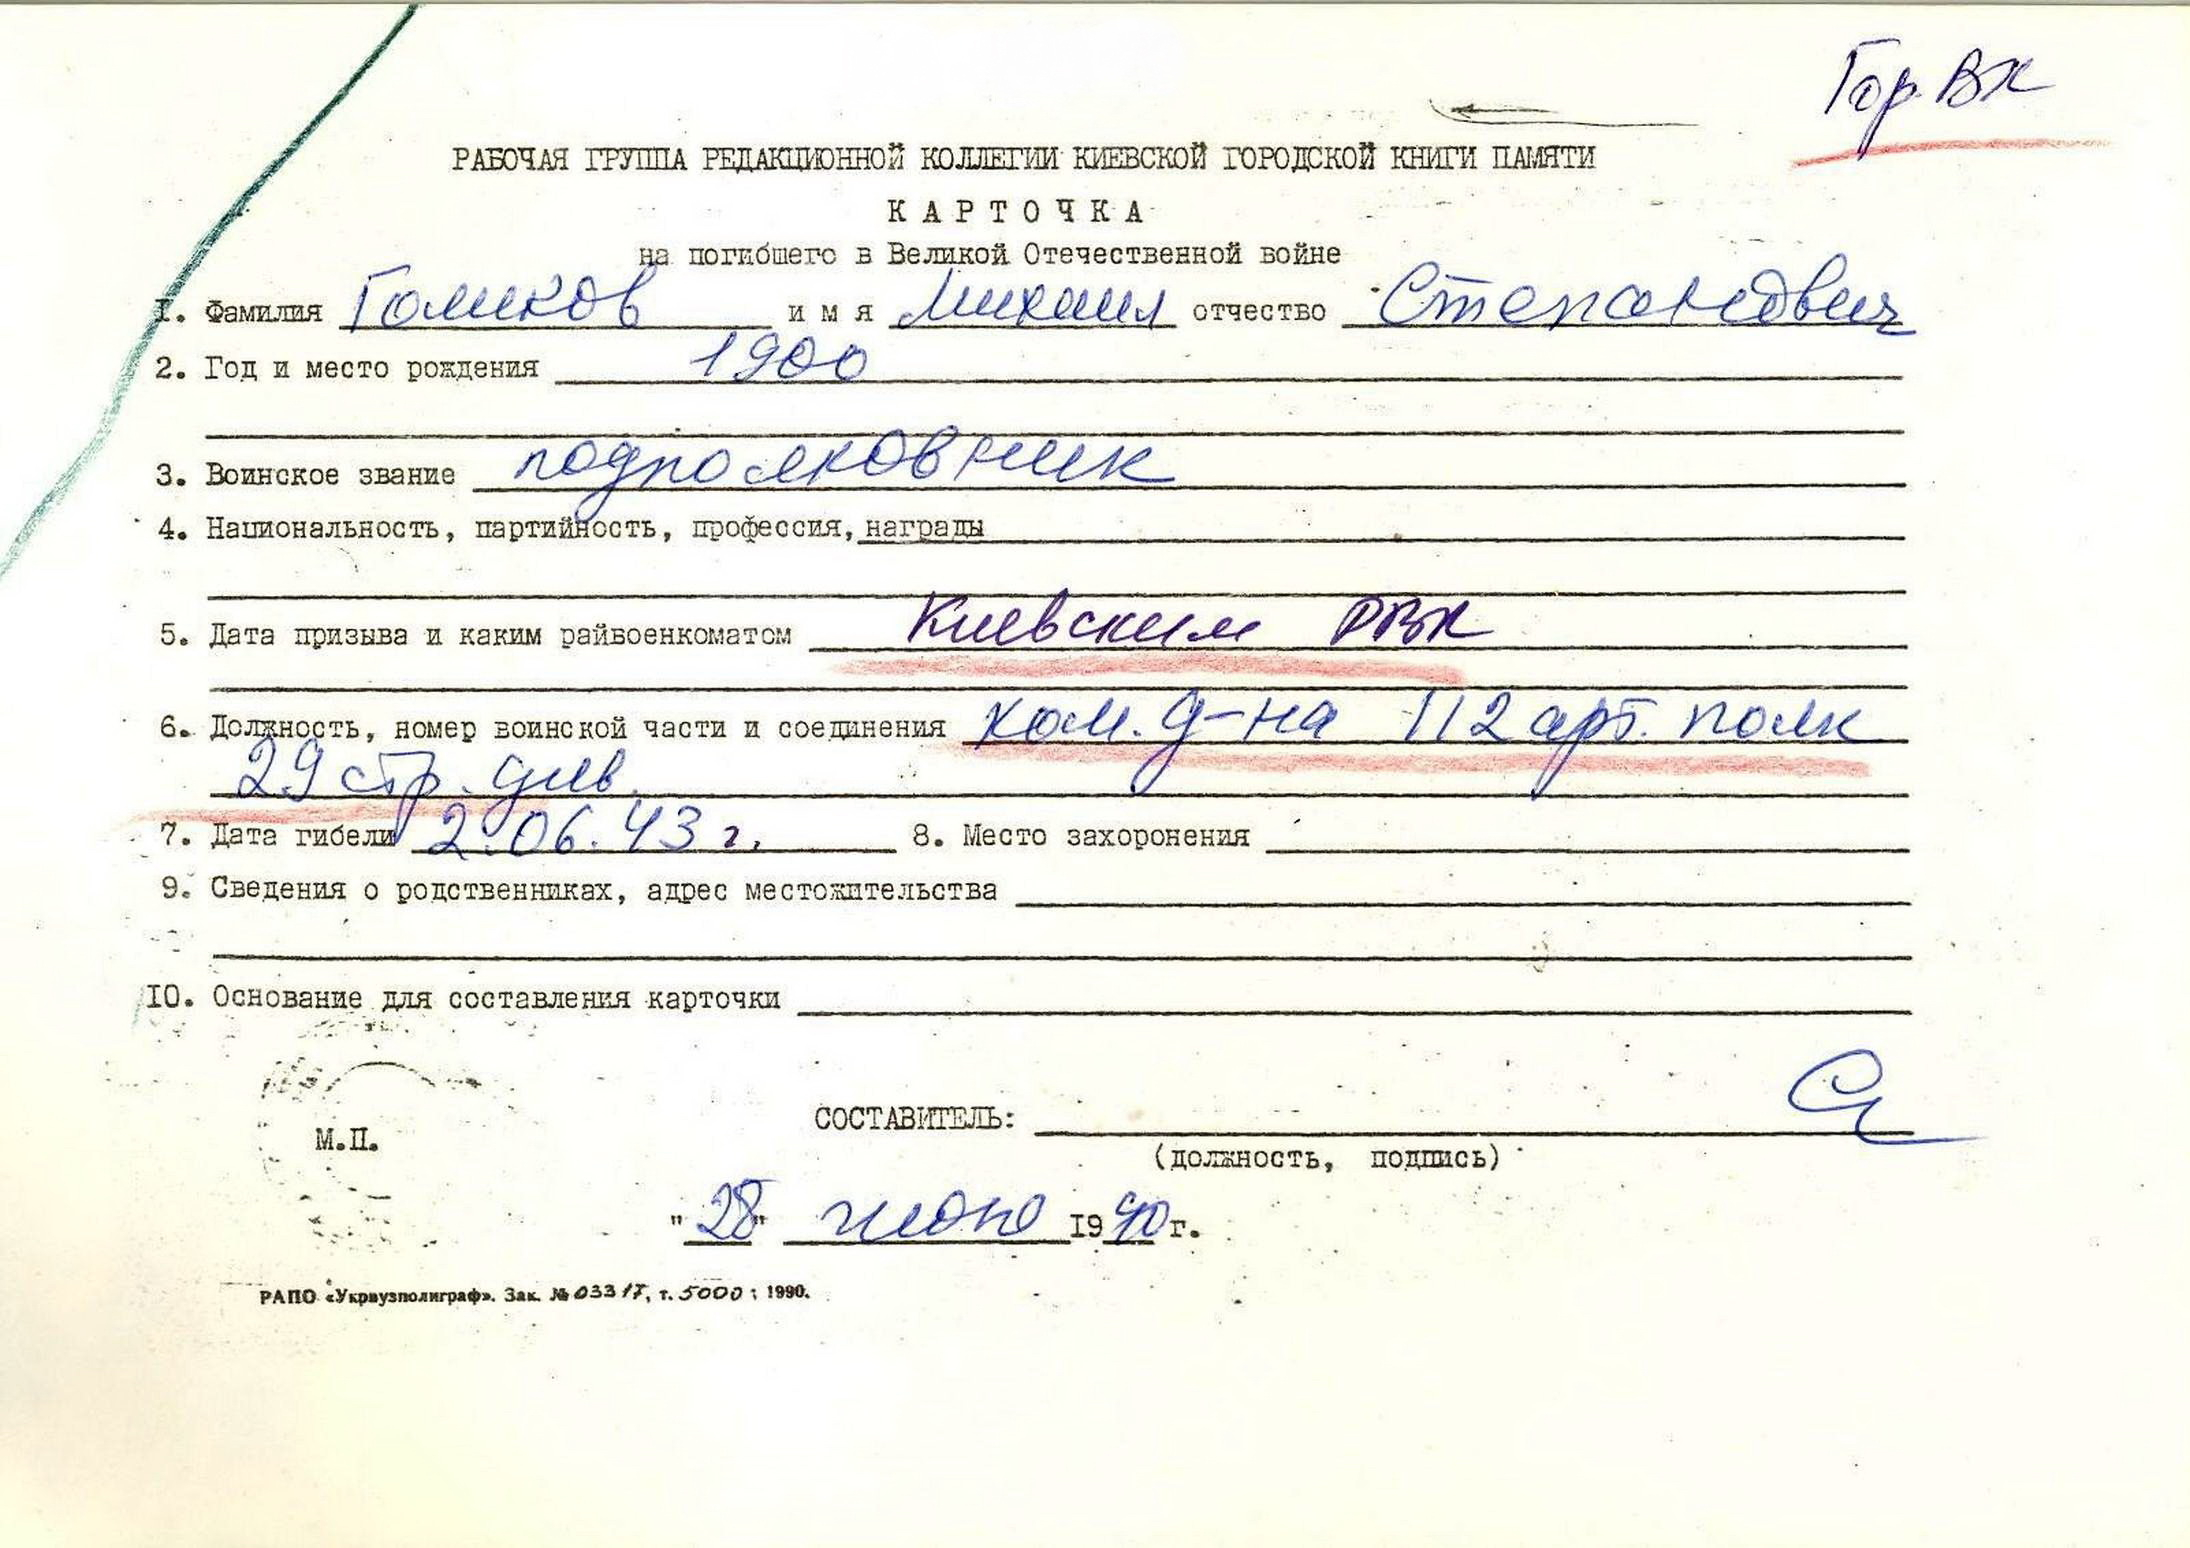 Гор. ВК
РАБОЧАЯ ГРУППА РЕДАКЦИОННОЙ КОЛЛЕГИИ КИЕВСКОЙ ГОРОДСКОЙ КНИГИ ПАМЯТИ
КАРТОЧКА
на погибшего в Великой Отечественной войне
1. Фамилия Голиков имя Михаил отчество Степанович
2. Год и место рождения 1900
3. Воинское звание подполковник
4. Национальность, партийность, профессия, награды
5. Дата призыва и каким райвоенкоматом Киевским РВК
6. Должность, номер воинской части и соединения ком. д-на 112 арт. полк
29 стр. див.
7. Дата гибели 2.06.43 г. 8. Место захоронения
9. Сведения о родственниках, адрес местожительства
10. Основание для составления карточки
СОСТАВИТЕЛЬ:
М.П.
(должность, подпись)
"28" июня 1990 г.
РАПО «Укрвузполиграф». Зак. № 03317, т. 5000; 1990.